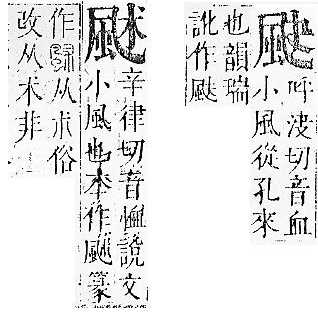 呼決切音血
小風從孔來
也韻瑞
訛作
辛律切音恤說文
小風也本作篆
作从朮俗
改从术非